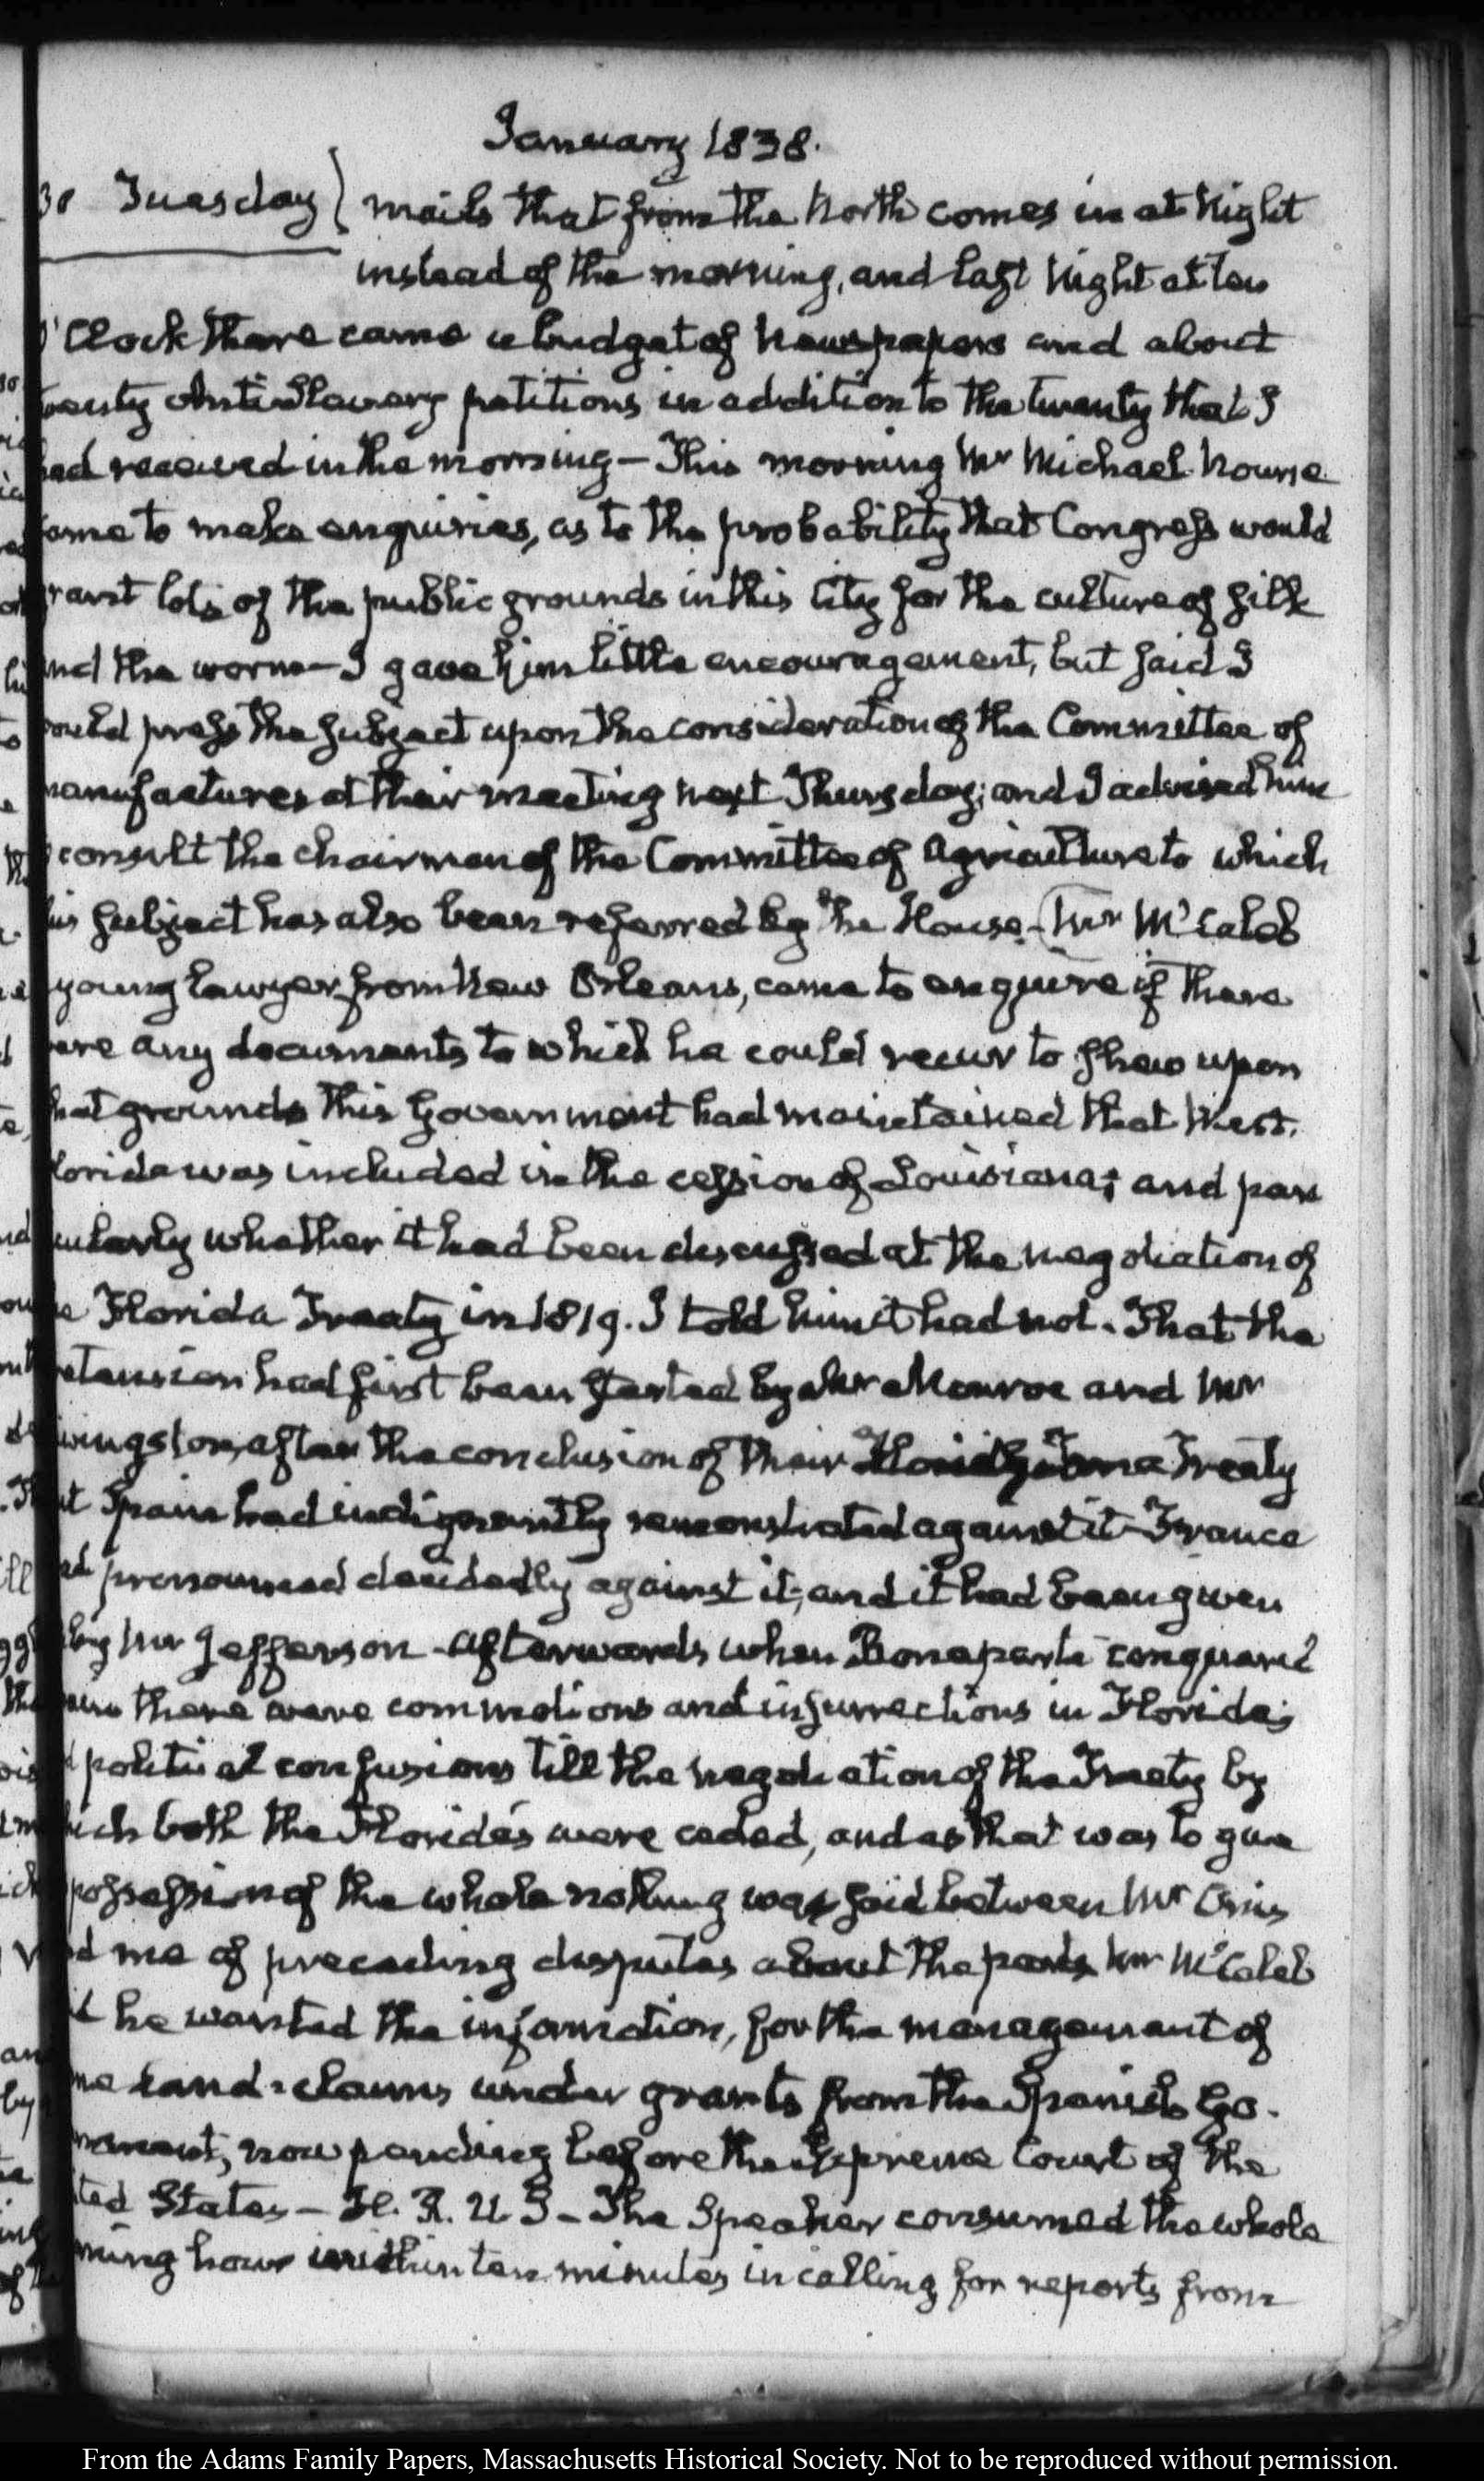 January 1838.
30 Tuesday} mails that from the North comes in at Night
instead of the morning, and last Night at ten
O'Clock there came a budget of Newspapers and about
twenty AntiSlavery petitions in addition to the twenty that I
had received in the morning — This morning Mr Michael Nourse
came to make enquiries, as to the probability that Congress would
grant lots of the public grounds in this City for the culture of silk
and the worm — I gave him little encouragement, but said I
would press the subject upon the consideration of the Committee of
manufactures at their meeting next Thursday; and I advised him
consult the chairman of the Committee of Agriculture to which
this subject has also been referred by the House. — Mr McCaleb
young Lawyer from New Orleans, came to enquire if there
were any documents to which he could recur to shew upon
what grounds this Government had maintained that West.
Florida was included in the cession of Louisiana; and par
ticularly whether it had been discussed at the negotiation of
the Florida Treaty in 1819. I told him it had not. That the
pretension had first been started by Mr Monroe and Mr
Livingston, after the conclusion of their Treaty
that Spain had indignantly remonstrated against it — France
had pronounced decidedly against it; and it had been given
by Mr Jefferson — Afterwards when Bonaparte conquered
Spain there were commotions and insurrections in Florida;
political confusions till the negotiation of the Treaty by
which both the Florida's were ceded, and as that was to give
possession of the whole nothing was said between Mr Onis
and me of preceding disputes about the parts. Mr McCaleb
said he wanted the information, for the management of
some land-claims under grants from the Spanish Go-
vernment, now pending before the Supreme Court of the
United States — H. R. U. S — The Speaker consumed the whole
morning hour within ten minutes in calling for reports from
From the Adams Family Papers, Massachusetts Historical Society. Not to be reproduced without permission.